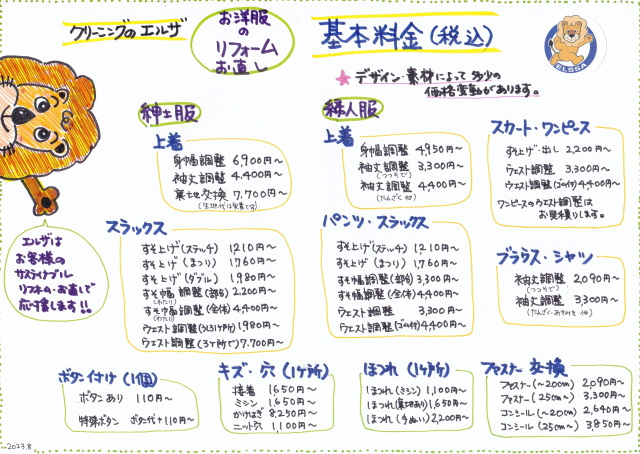 クリーニングのエルザ
お洋服
の
リフォーム
お直し
基本料金(税込)
ELSSA
★デザイン・素材によって多少の
価格変動があります。
紳士服
上着
身幅調整 6,900円〜
袖丈調整 4,400円〜
裏地交換 7,700円〜
スラックス
すそ上げ(ステッチ) 1210円〜
すそ上げ(まつり) 1,760円〜
すそ上げ(ダブル) 1,980円〜
すそ幅調整(部分) 2,200円〜
(わたり)
すそ幅調整(全体) 4,400円〜
(わたり)
ウエスト調整(うしろ1ヶ所) 1980円〜
ウエスト調整(3ヶ所で) 7,700円〜
婦人服
上着
身幅調整 4,950円〜
袖丈調整 3,300円〜
(つつそで)
袖丈調整 4,400円〜
パンツ・スラックス
すそ上げ(ステッチ) 1,210円〜
すそ上げ(まつり) 1,760円〜
すそ幅調整(部分) 3,300円〜
すそ幅調整(全体) 4,400円〜
ウエスト調整 3,300円〜
ウエスト調整(ゴム付) 4,400円〜
スカート・ワンピース
すそ上げ・出し 2,200円〜
ウエスト調整 3,300円〜
ウエスト調整(ゴム付) 4,400円〜
ワンピースのウエスト調整は
お見積りします。
ブラウス・シャツ
袖丈調整 2,090円〜
(つつそで)
袖丈調整 3,300円〜
エルザは
お客様の
サスティナブル
リフォーム・お直しで
応援します!!
ボタン付け(1個)
ボタンあり 110円〜
特殊ボタン ボタン代+110円〜
キズ・穴(1ヶ所)
接着 1650円〜
ミシン 1,650円〜
かけはぎ 8,250円〜
ニット穴 1,100円〜
ほつれ(1ヶ所)
ほつれ(ミシン) 1,100円〜
ほつれ(裏地あり) 1,650円〜
ほつれ(手ぬい) 2,200円〜
ファスナー交換
ファスナー(〜20cm) 2,090円〜
ファスナー(25cm〜) 3,300円〜
コンシール(〜20cm) 2,640円〜
コンシール(25cm〜) 3,850円〜
2023.8